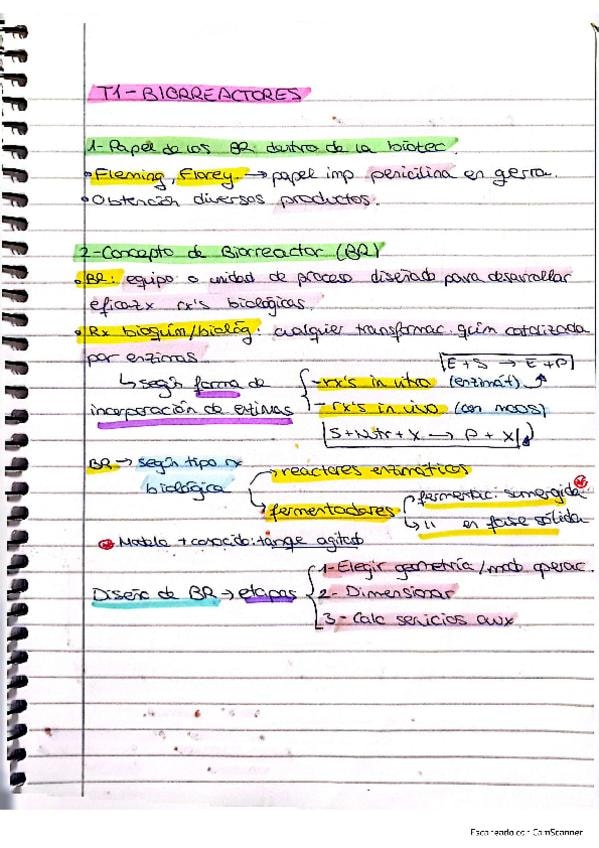 T1 - BIORREACTORES
1- Papel de los BR dentro de la biotec.
• Fleming, Florey. → papel imp penicilina en gerra.
• Obtención diversos productos.
2- Concepto de Biorreactor (BR)
• BR: equipo o unidad de proceso diseñado para desarrollar
eficazx rx's biológicas.
• Rx bioquím/biológ: cualquier transformac. quím catalizada
por enzimas
E + S → E + P
↳ según forma de
incorporación de
- rx's in vitro (enzimát)
- rx's in vivo (con moos)
S + Nutr + X → P + X
BR → según tipo rx
biológica
→ reactores enzimáticos
→ fermentadores
fermentac. sumergida
↳ '' en fase sólida
Modelo + conocido: tanque agitado
Diseño de BR → etapas
1- Elegir geometría / mod operac.
2- Dimensionar
3- Calc servicios aux
Escaneado con CamScanner